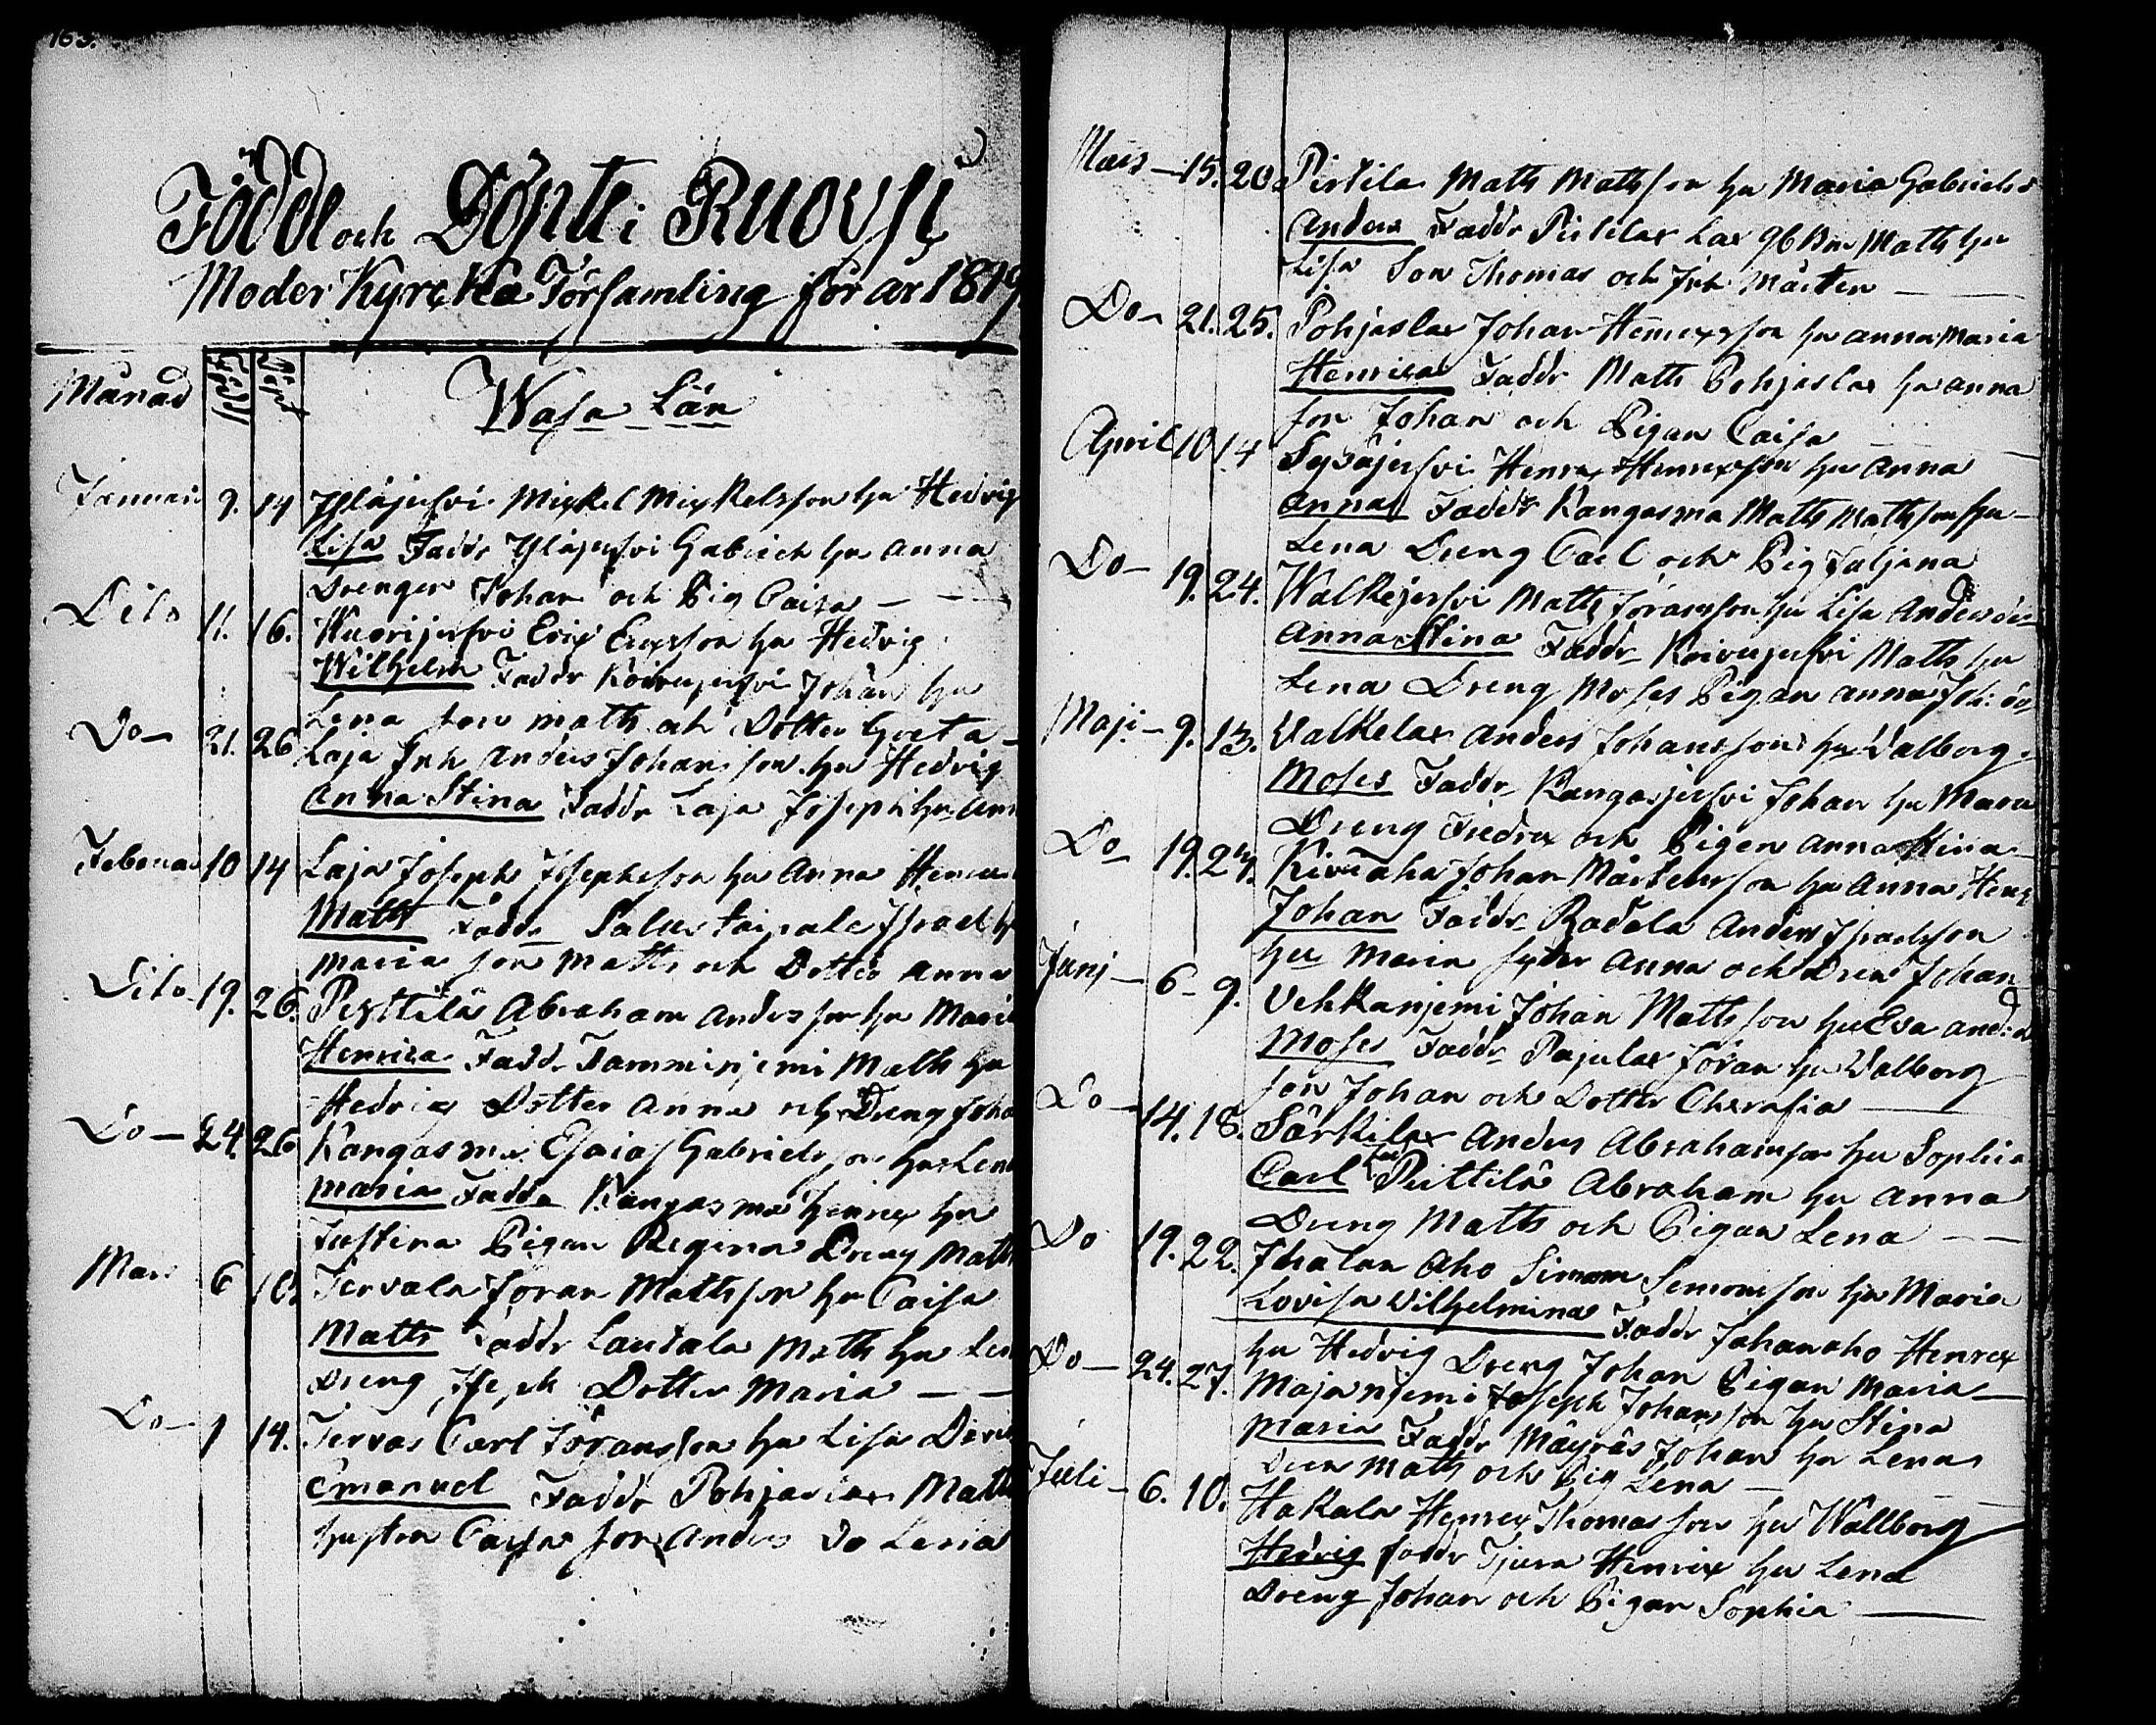 163.
Född och Döpte i Ruovsi
Moder Kyrcko Församling för år 1819
Månad Född Döpt
Wasa Län
Januari 9. 14 Ylåjerfvi Mickel Mickelsson hu Hedvig
Lisa Faddr Ylåjerfvi Gabriel hu Anna
Drenger Johan och Pig Caisa
Dito 11. 16. Wuorijerfvi Eric Ericsson hu Hedvig
Wilhelm Faddr Koivujerfvi Johan hu
Lena son Matts och Dotter Greta
Do 21. 26 Laja Inh Anders Johansson hu Hedvig
Anna Stina Faddr Laja Joseph hu Ann
Februar 10 14 Laja Joseph Josephsson hu Anna Henric
Matts Faddr Salus taipale Israel h
Maria son Matts och Dotter Anna
Dito 19. 26. Pesttilä Abraham Anderson hu Mari
Henrica Fadd. Tamminjemi Matts hu
Hedvig Dotter Anna och Dreng Joha
Do 24. 26 Kangasma Esaias Gabrielsson hu Len
Maria Fadda Kangasma Henrex hu
Justina Pigan Regina Dreng Matt
Mars 6 10. Tervala Joran Mattsson hu Caisa
Matts Faddr Lautala Matts hu Len
Dreng Joseph Dotter Maria
Do 7 14. Tervas Carl Joransson hu Lisa
Emanuel Faddr Matt
hustru Caisa son Anders Do Lena
Mars 15. 20. Pirtila Matts Mattsson hu Maria Gabriels
Anders Faddr Pirtilax Matts hu
Lisa Son Thomas och Inh Mårten
Do 21. 25. Pohjaslax Johan Henrexsson hu Anna Maria
Henrica Faddr Matts Pohjaslax hu Anna
son Johan och Pigan Caisa
April 10 14 Sysäjerfvi Henrex Henrexson hu Anna
Anna Faddr Kangasma Matts Mattsson hu
Lena Dreng Carl och Pig Juljana
Do 19. 24. Walkejerfvi Matts Joransson hu Lisa Andersdr
Anna Stina Faddr Koivujerfvi Matts hu
Lena Dreng Moses Pigan Anna Joh: do
Maji 9. 13. Valkelax Anders Johansson hu Valborg
Moses Faddr Kangasjerfvi Johan hu Maria
Dreng Fredrex och Pigen Anna Stina
Do 19. 24. Kiviaho Johan Mårtensson hu Anna Henr
Johan Faddr Radala Anders Israelsson
hu Maria syster Anna och Dren Johan
Junj 6 9. Vehkanjemi Johan Mattsson hu Eva And: d
Moses Faddr Pajulax Joran hu Valborg
son Johan och Dotter
Do 14. 18. Särkilax Anders Abrahamson hu Sophia
Carl Fad Pesttilä Abraham hu Anna
Dreng Matts och Pigan Lena
Do 19. 22. Ihalan Aho Simon Semonsson hu Maria
Lovisa Wilhelmina Faddr Johanaho Henrex
hu Hedvig Dreng Johan Pigan Maria
Do 24. 27. Majanjemi Joseph Johansson hu Stina
Maria Faddr Mäyräs Johan hu Lena
Dren Matts och Pig Lena
Juli 6. 10. Hakala Henrex Thomasson hu Wallborg
Hedvig Faddr Tjura Henrix hu Lena
Dreng Johan och Pigan Sophia